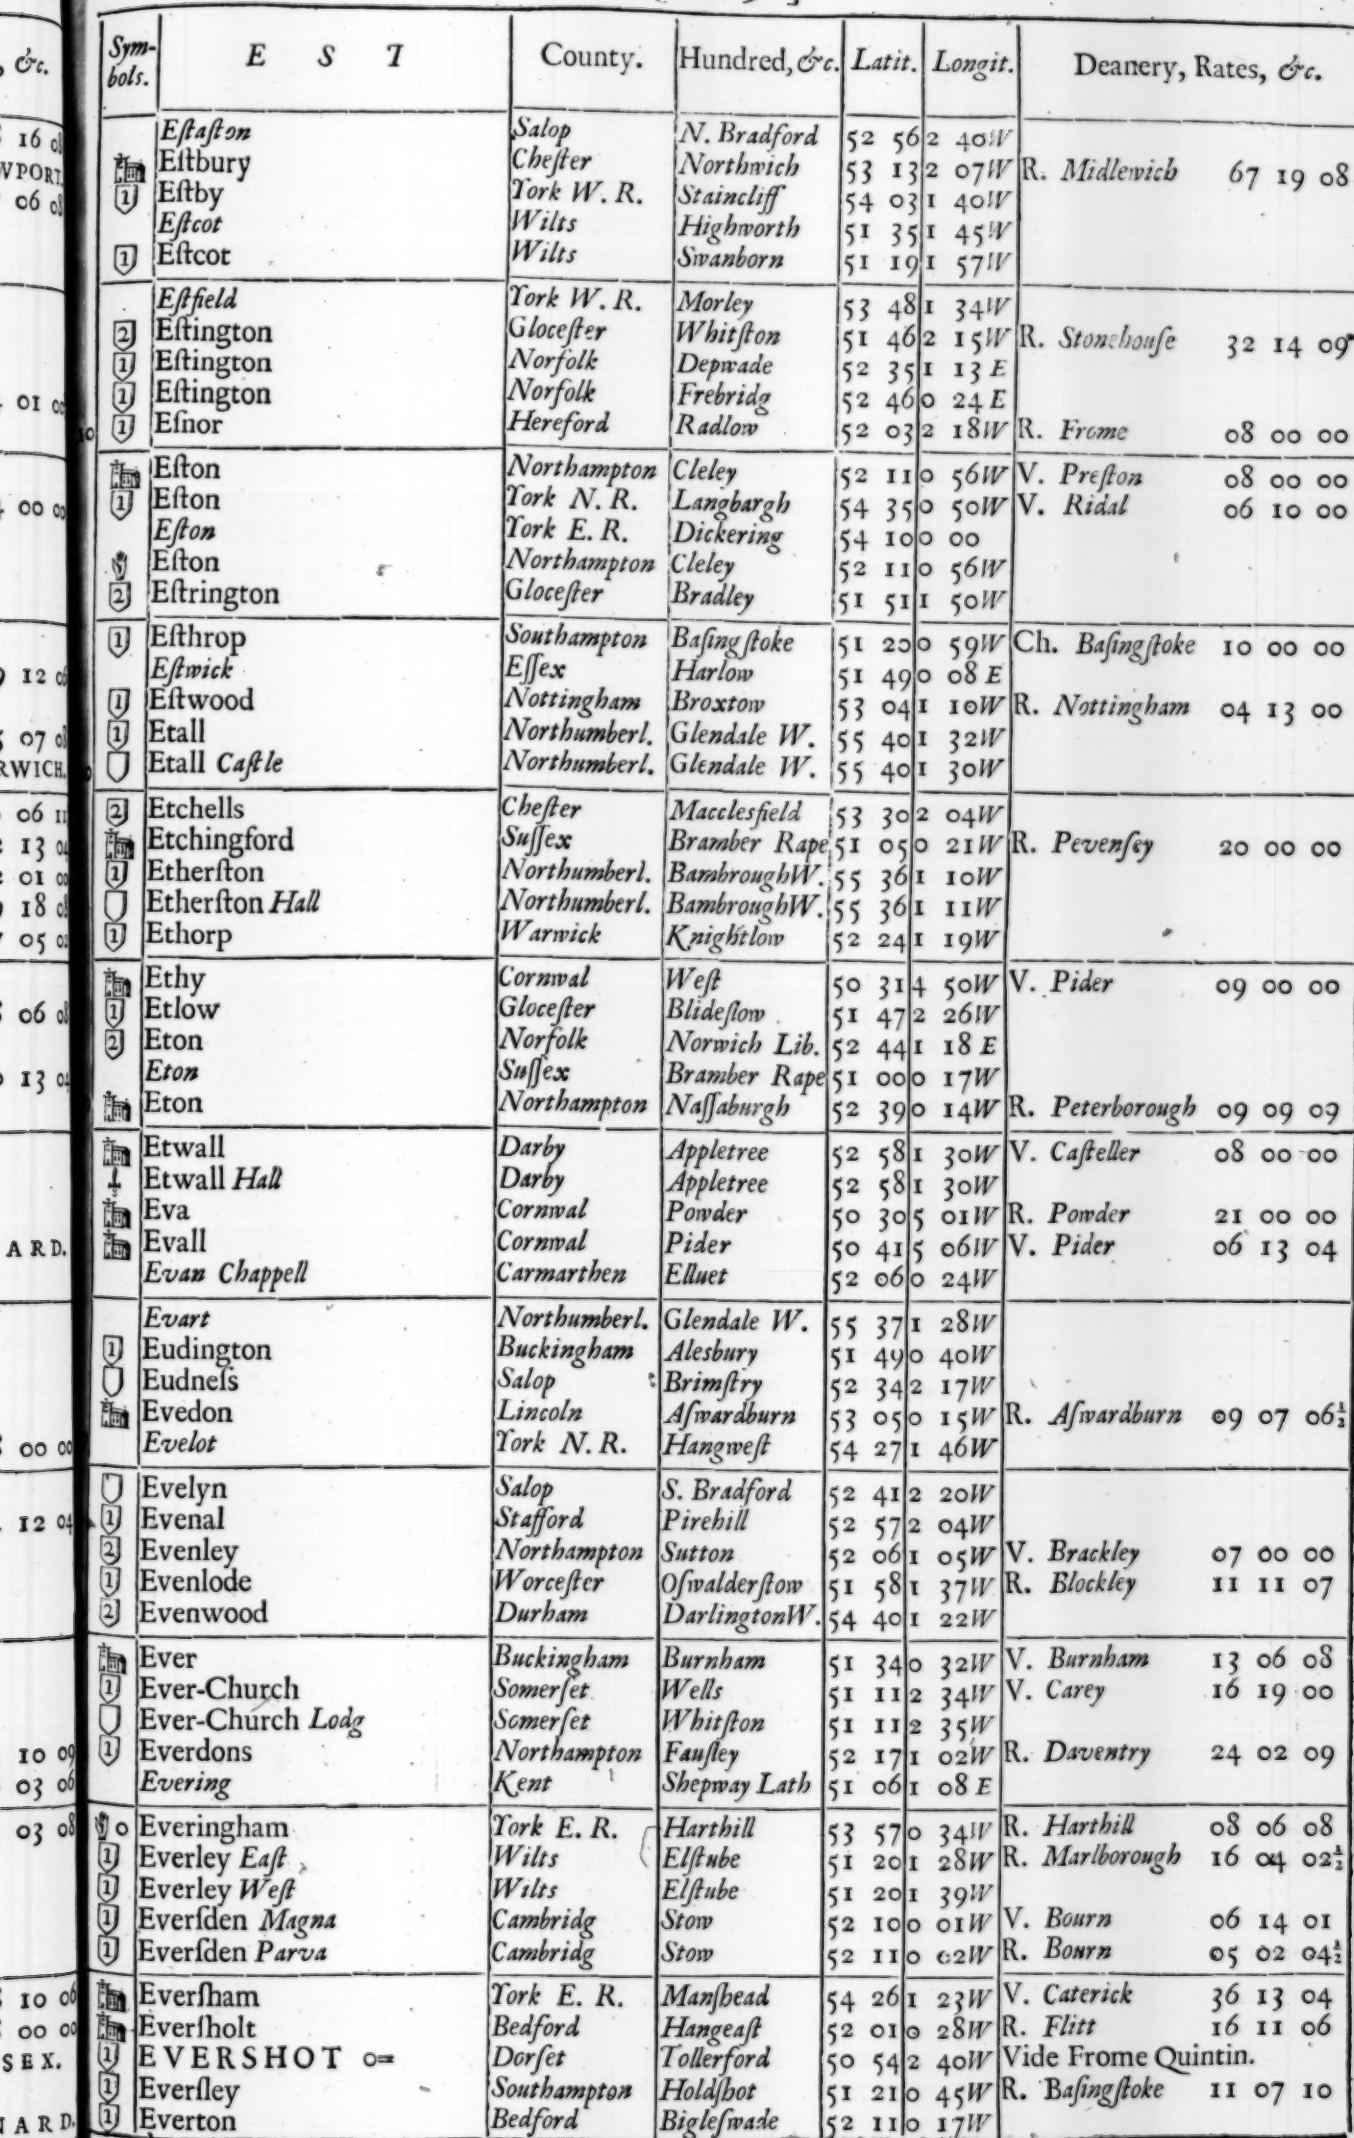 Sym-bols. E S T County. Hundred, &c. Latit. Longit. Deanery, Rates, &c.
Eſtaſton Salop N. Bradford 52 56 2 40W
Eſtbury Cheſter Northwich 53 13 2 07W R. Midlewich 67 19 08
1 Eſtby York W. R. Staincliff 54 03 1 40W
Eſtcot Wilts Highworth 51 35 1 45W
1 Eſtcot Wilts Swanborn 51 19 1 57W
Eſtfield York W. R. Morley 53 48 1 34W
2 Eſtington Gloceſter Whitſton 51 46 2 15W R. Stonehouſe 32 14 09
1 Eſtington Norfolk Depwade 52 35 1 13 E
1 Eſtington Norfolk Frebridg 52 46 0 24 E
1 Eſnor Hereford Radlow 52 03 2 18W R. Frome 08 00 00
Eſton Northampton Cleley 52 11 0 56W V. Preſton 08 00 00
1 Eſton York N. R. Langbargh 54 35 0 50W V. Ridal 06 10 00
Eſton York E. R. Dickering 54 10 0 00
Eſton Northampton Cleley 52 11 0 56W
2 Eſtrington Gloceſter Bradley 51 51 1 50W
1 Eſthrop Southampton Baſingſtoke 51 20 0 59W Ch. Baſingſtoke 10 00 00
Eſtwick Eſſex Harlow 51 49 0 08 E
1 Eſtwood Nottingham Broxtow 53 04 1 10W R. Nottingham 04 13 00
1 Etall Northumberl. Glendale W. 55 40 1 32W
Etall Caſtle Northumberl. Glendale W. 55 40 1 30W
2 Etchells Cheſter Macclesfield 53 30 2 04W
Etchingford Suſſex Bramber Rape 51 05 0 21W R. Pevenſey 20 00 00
1 Etherſton Northumberl. BambroughW. 55 36 1 10W
Etherſton Hall Northumberl. BambroughW. 55 36 1 11W
1 Ethorp Warwick Knightlow 52 24 1 19W
Ethy Cornwal Weſt 50 31 4 50W V. Pider 09 00 00
1 Etlow Gloceſter Blideſlow 51 47 2 26W
2 Eton Norfolk Norwich Lib. 52 44 1 18 E
Eton Suſſex Bramber Rape 51 00 0 17W
Eton Northampton Naſſaburgh 52 39 0 14W R. Peterborough 09 09 09
Etwall Darby Appletree 52 58 1 30W V. Caſteller 08 00 00
Etwall Hall Darby Appletree 52 58 1 30W
Eva Cornwal Powder 50 30 5 01W R. Powder 21 00 00
Evall Cornwal Pider 50 41 5 06W V. Pider 06 13 04
Evan Chappell Carmarthen Elluet 52 06 0 24W
Evart Northumberl. Glendale W. 55 37 1 28W
1 Eudington Buckingham Alesbury 51 49 0 40W
Eudneſs Salop Brimſtry 52 34 2 17W
Evedon Lincoln Aſwardburn 53 05 0 15W R. Aſwardburn 09 07 06½
Evelot York N. R. Hangweſt 54 27 1 46W
Evelyn Salop S. Bradford 52 41 2 20W
1 Evenal Stafford Pirehill 52 57 2 04W
2 Evenley Northampton Sutton 52 06 1 05W V. Brackley 07 00 00
1 Evenlode Worceſter Oſwalderſtow 51 58 1 37W R. Blockley 11 11 07
2 Evenwood Durham DarlingtonW. 54 40 1 22W
Ever Buckingham Burnham 51 34 0 32W V. Burnham 13 06 08
1 Ever-Church Somerſet Wells 51 11 2 34W V. Carey 16 19 00
Ever-Church Lodg Somerſet Whitſton 51 11 2 35W
1 Everdons Northampton Fauſley 52 17 1 02W R. Daventry 24 02 09
Evering Kent Shepway Lath 51 06 1 08 E
Everingham York E. R. Harthill 53 57 0 34W R. Harthill 08 06 08
1 Everley Eaſt Wilts Elſtube 51 20 1 28W R. Marlborough 16 04 02½
1 Everley Weſt Wilts Elſtube 51 20 1 39W
1 Everſden Magna Cambridg Stow 52 10 0 01W V. Bourn 06 14 01
1 Everſden Parva Cambridg Stow 52 11 0 02W R. Bourn 05 02 04½
Everſham York E. R. Manſhead 54 26 1 23W V. Caterick 36 13 04
Everſholt Bedford Hangeaſt 52 01 0 28W R. Flitt 16 11 06
1 EVERSHOT Dorſet Tollerford 50 54 2 40W Vide Frome Quintin.
1 Everſley Southampton Holdſhot 51 21 0 45W R. Baſingſtoke 11 07 10
1 Everton Bedford Bigleſwade 52 11 0 17W